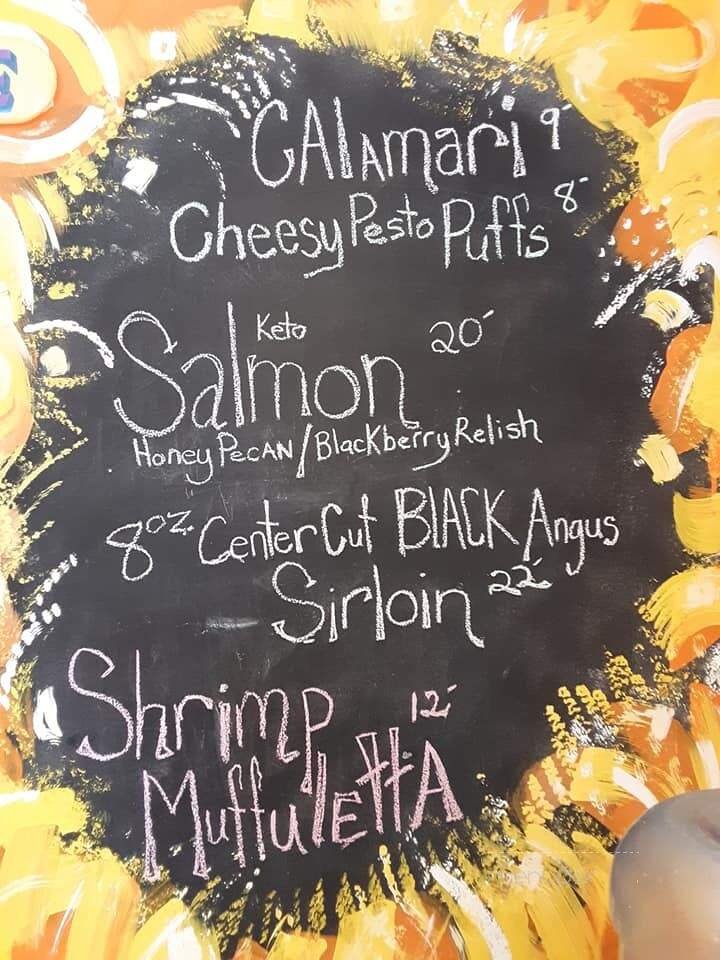 CAlAmari 9-
Cheesy Pesto Puffs 8-
Keto
Salmon 20-
Honey PecAN/Blackberry Relish
8oz Center Cut BLACK Angus
Sirloin 22-
Shrimp 12-
MuffulEttA